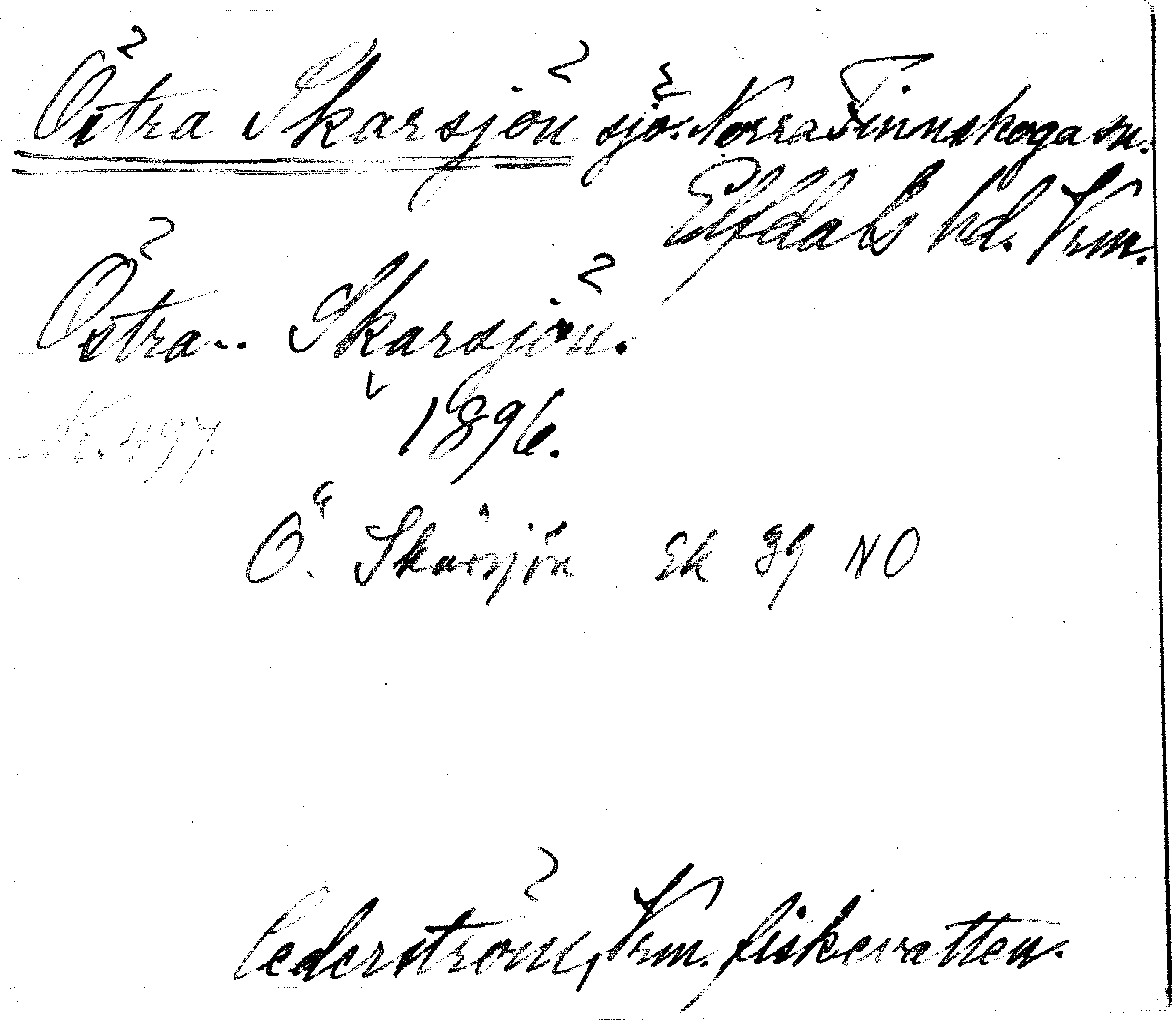 Östra Skarsjön sjö. Norra Finnskoga sn.
Elfdals hd. Vrm.
Östra.. Skarsjön.
Nr. 497. 1896.
Ö. Skårsjön Ek 39 NO
Cederström, Vrm. fiskevatten.